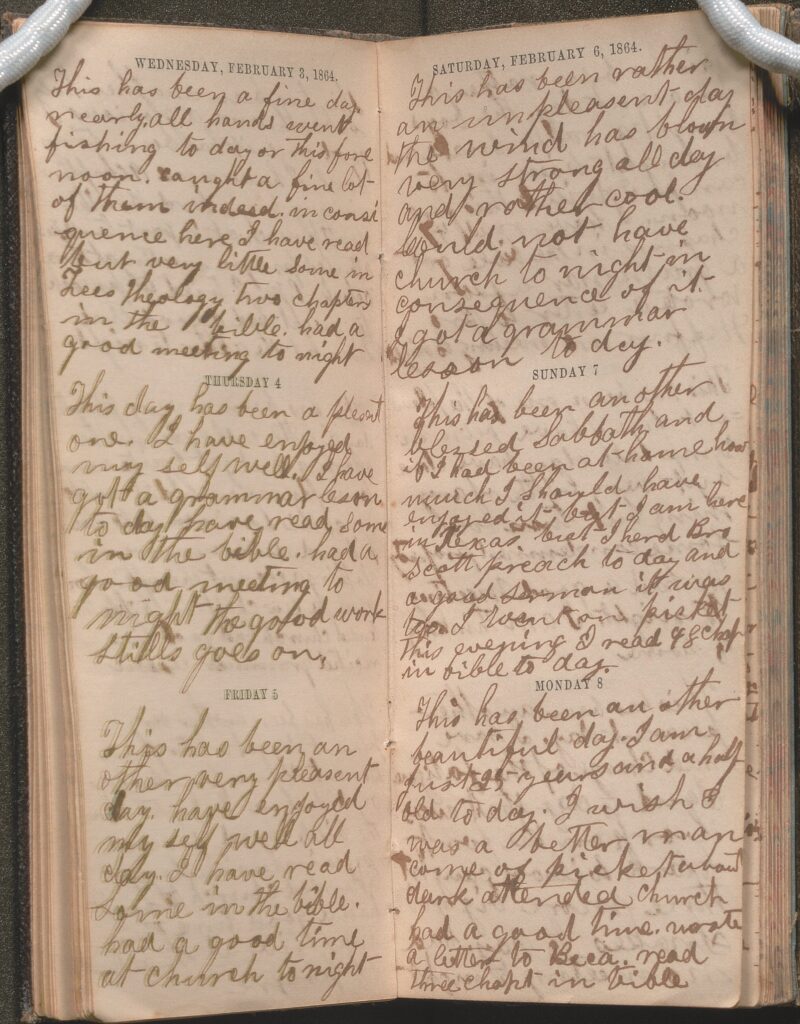 WEDNESDAY, FEBRUARY 3, 1864.
This has been a fine day
nearly all hands went
fishing to day or this fore
noon. caught a fine lot
of them indeed. in consi
quence here I have read
but very little some in
Lees theology two chapters
in the bible. had a
good meeting to night
THURSDAY 4
This day has been a plesnt
one. I have enjoyed
my self well. I have
got a grammar leson
to day have read some
in the bible. had a
good meeting to
night the good work
stills goes on,
FRIDAY 5
This has been an
other very pleasent
day. have enjoyed
my self well all
day. I have read
some in the bible.
had a good time
at church to night
SATURDAY, FEBRUARY 6, 1864.
This has been rather
an unpleasent day
the wind has blown
very strong all day
and rather cool.
Could not have
church to night in
consequence of it
I got a grammar
leson to day.
SUNDAY 7
This has been another
blessed Sabbath and
if I had been at home how
much I should have
enjoyed it but I am here
in Texas but I herd Bro
Scott preach to day and
a good serman it was
too I went on picket
this evening I read 48 chap
in bible to day.
MONDAY 8
This has been an other
beautiful day. I am
just 25 years and a half
old to day. I wish I
was a better man
come of picket about
dark attended church
had a good time. wrote
a letter to Beca. read
three chapt in bible